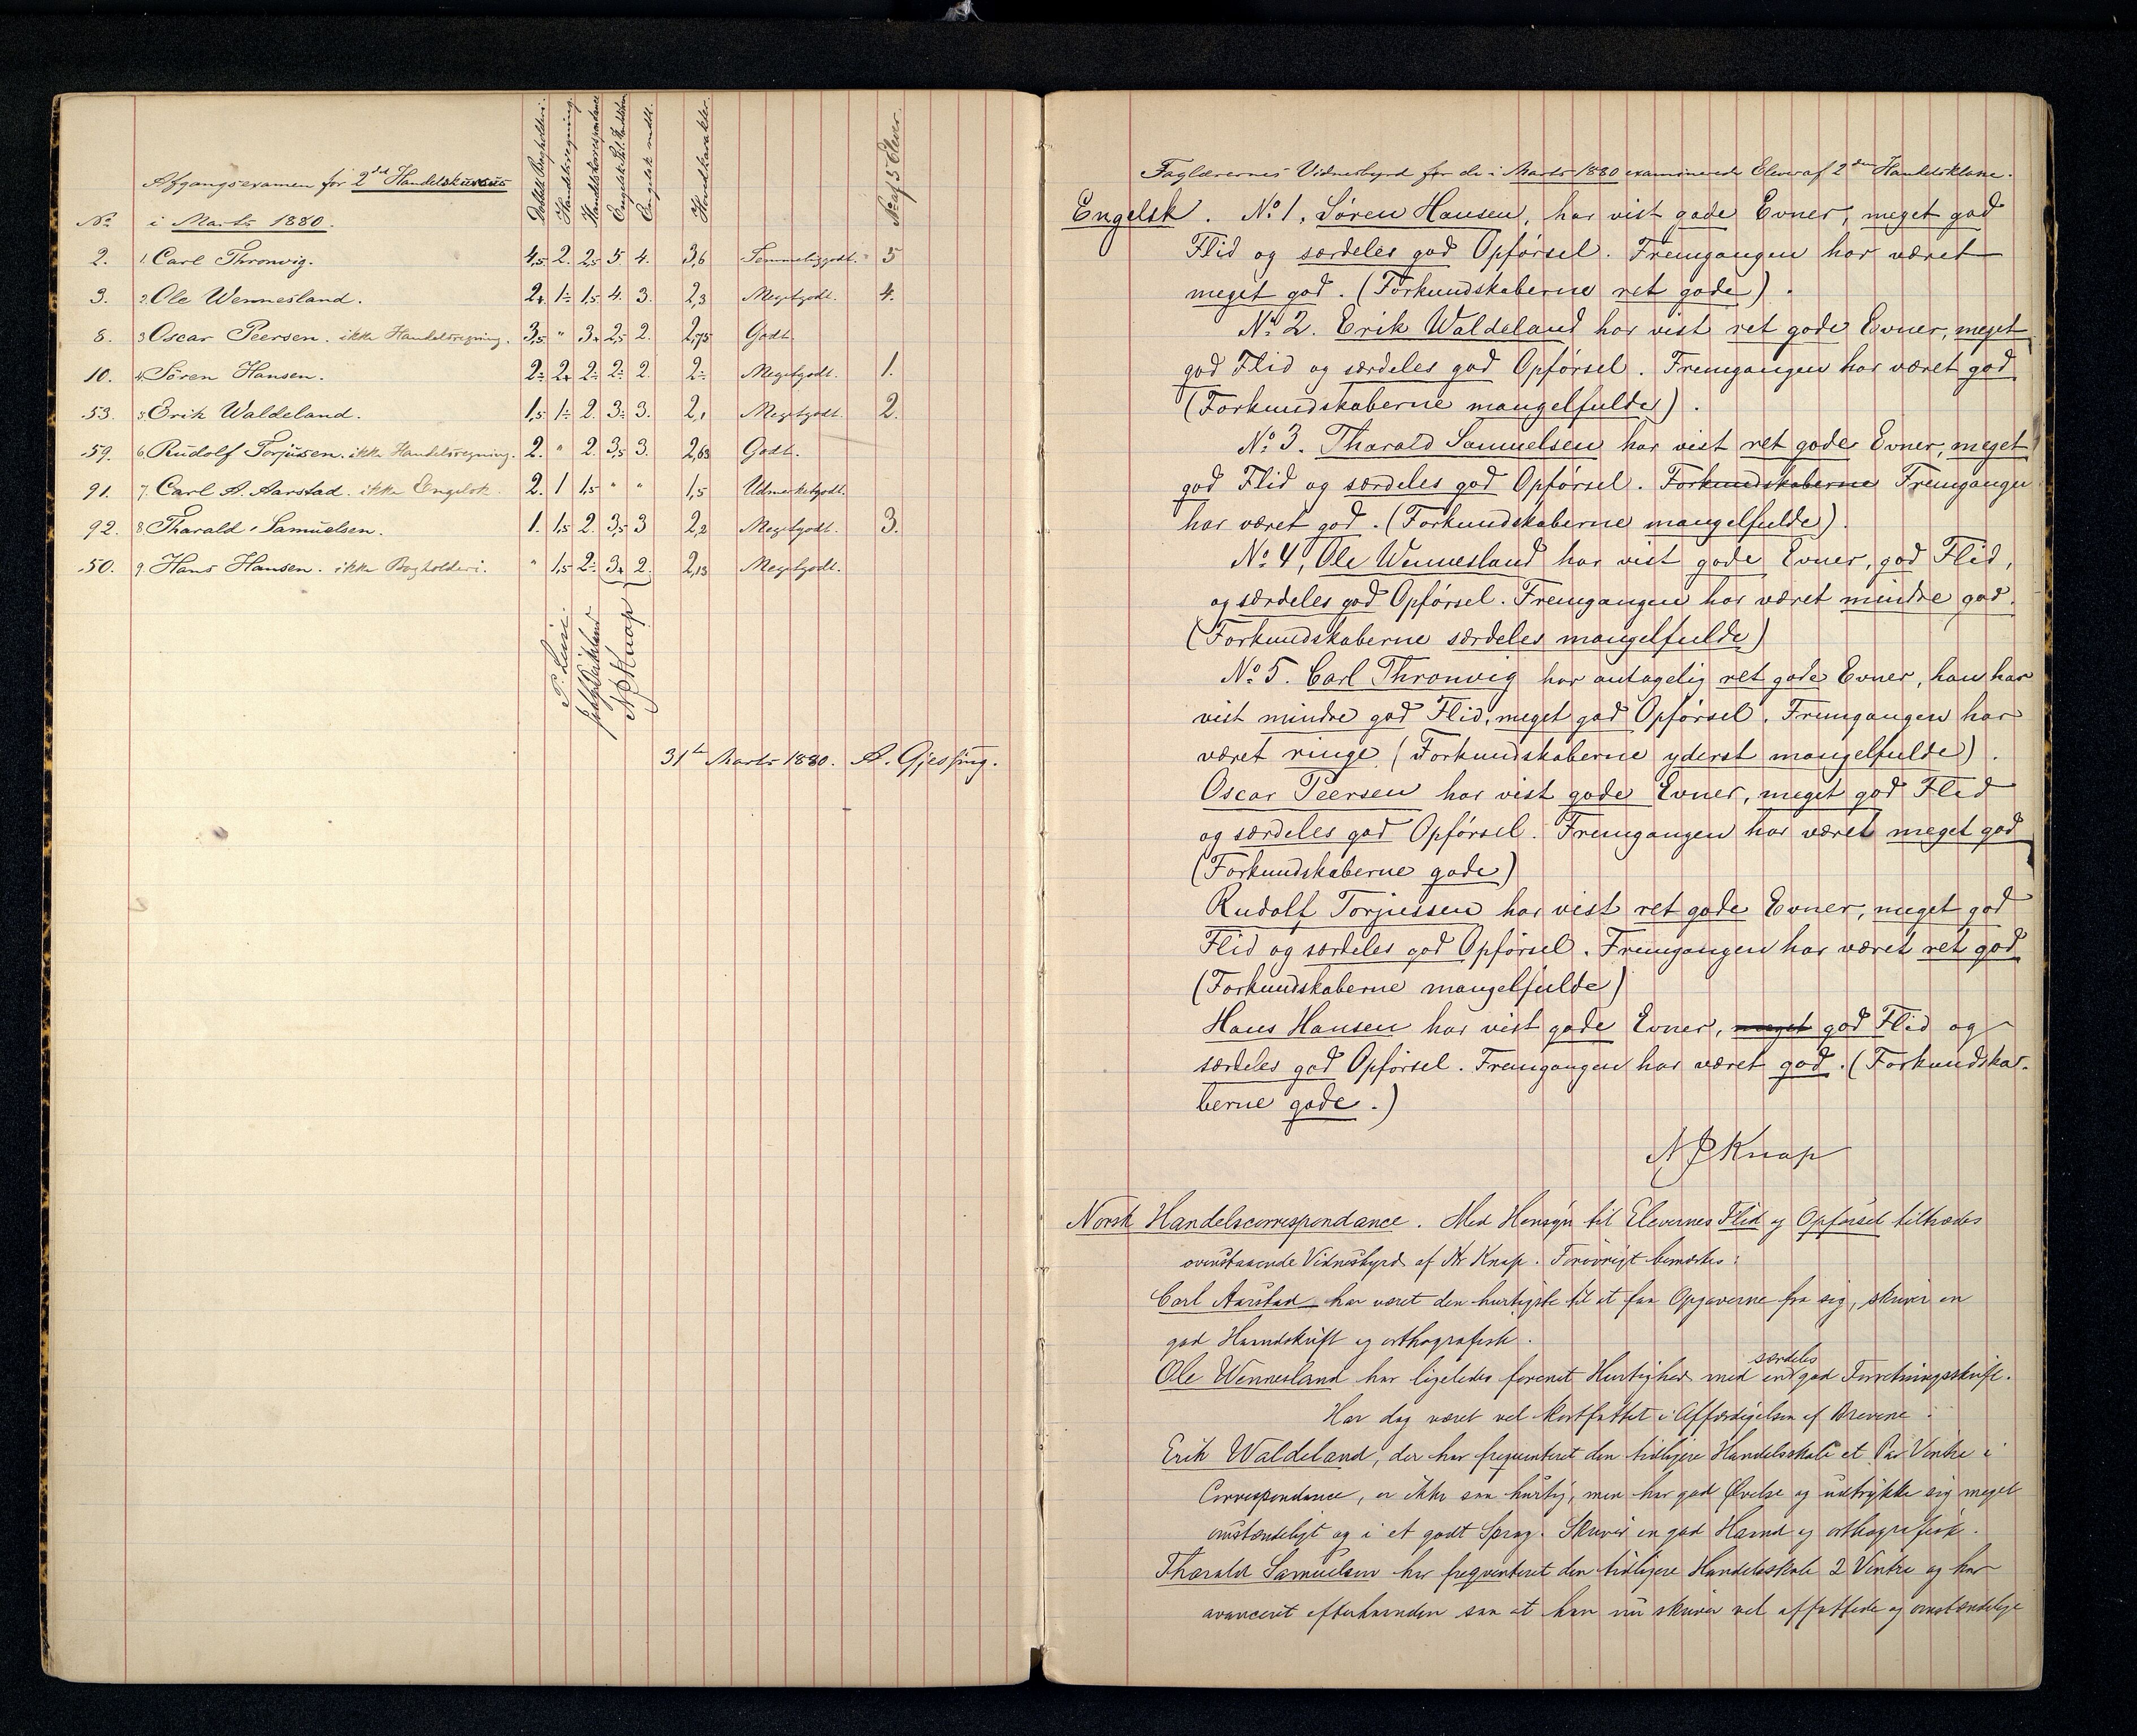 Afgangsexamen for 2det Handelskursus
No i Marts 1880.
Dobbelt Bogholderi. Handelsregning. Handelskorrespondance Engelsk mdtl. Hovedkarakter. No af 5 Elever.
2. 1. Carl Thronvig. 4,5 2. 2,5 5. 4. 3,6 Temmeliggodt. 5
3. 2. Ole Wennesland. 2+ 1÷ 1,5 4. 3. 2,3 Megetgodt. 4.
8. 3 Oscar Peersen. ikke Handelsregning. 3,5 " 3+ 2,5 2. 2,75 Godt.
10. 4. Sören Hansen. 2÷ 2+ 2÷ 2÷ 2. 2÷ Megetgodt. 1.
53. 5. Erik Waldeland. 1,5 1÷ 2. 3÷ 3. 2,1 Megetgodt. 2.
59. 6. Rudolf Torjusen. ikke Handelsregning. 2. " 2. 3,5 3. 2,63 Godt.
91. 7. Carl A. Aarstad. ikke Engelsk. 2. 1 1,5 " " 1,5 Udmerketgodt.
92. 8. Tharald Samuelsen. 1. 1,5 2. 3,5 3 2,2 Megetgodt. 3.
50. 9. Hans Hansen. ikke Bogholderi. " 1,5 2÷ 3+ 2. 2,13 Megetgodt.
NJKnap
31te Marts 1880. A. Gjessing.
Faglærernes Vidnesbyrd for de i Marts 1880 examinerede Elever af 2den Handelsklasse.
Engelsk. No 1, Sören Hansen, har vist gode Evner, meget god
Flid og særdeles god Opförsel. Fremgangen har været
meget god. (Forkundskaberne ret gode).
No 2. Erik Waldeland har vist ret gode Evner, meget
god Flid og særdeles god Opförsel. Fremgangen har været god
(Forkundskaberne mangelfulde).
No 3. Tharald Samuelsen har vist ret gode Evner, meget
god Flid og særdeles god Opförsel. Forkundskaberne Fremgangen
har været god. (Forkundskaberne mangelfulde).
No 4, Ole Wennesland har vist gode Evner, god Flid,
og særdeles god Opförsel. Fremgangen har været mindre god.
(Forkundskaberne særdeles mangelfulde)
No 5. Carl Thronvig har antagelig ret gode Evner, han har
vist mindre god Flid, meget god Opförsel. Fremgangen har
været ringe (Forkundskaberne yderst mangelfulde).
Oscar Peersen har vist gode Evner, meget god Flid
og særdeles god Opförsel. Fremgangen har været meget god
(Forkundskaberne gode)
Rudolf Torjussen har vist ret gode Evner, meget god
Flid og særdeles god Opförsel. Fremgangen har været ret god
(Forkundskaberne mangelfulde)
Hans Hansen har vist gode Evner, meget god Flid og
særdeles god Opförsel. Fremgangen har været god. (Forkundska-
berne gode.)
NJKnap
Norsk Handelscorrespondance. Med Hensyn til Elevernes Flid og Opførsel tiltrædes
ovenstaaende Vidnesbyrd af Hr Knap. Forøvrigt bemærkes:
Carl Aarstad har været den hurtigste til at faa Opgaverne fra sig, skriver en
god Haandskrift og orthografisk.
Ole Wennesland har ligeledes forenet Hurtighed med en særdeles god Forretningsskrift.
Har dog været vel kortfattet i Affærdigelsen af Brevene.
Erik Waldeland, der har frequenteret den tidligere Handelsskole et Par Vintre i
Correspondance, er ikke saa hurtig, men har god Øvelse og udtrykke sig meget
omstændeligt og i et godt Sprog. Skriver en god Haand og orthografisk.
Tharald Samuelsen har frequenteret den tidligere Handelsskole 2 Vintre og har
avanceret efterhaanden saa at han nu skriver vel affattede og omstændelige